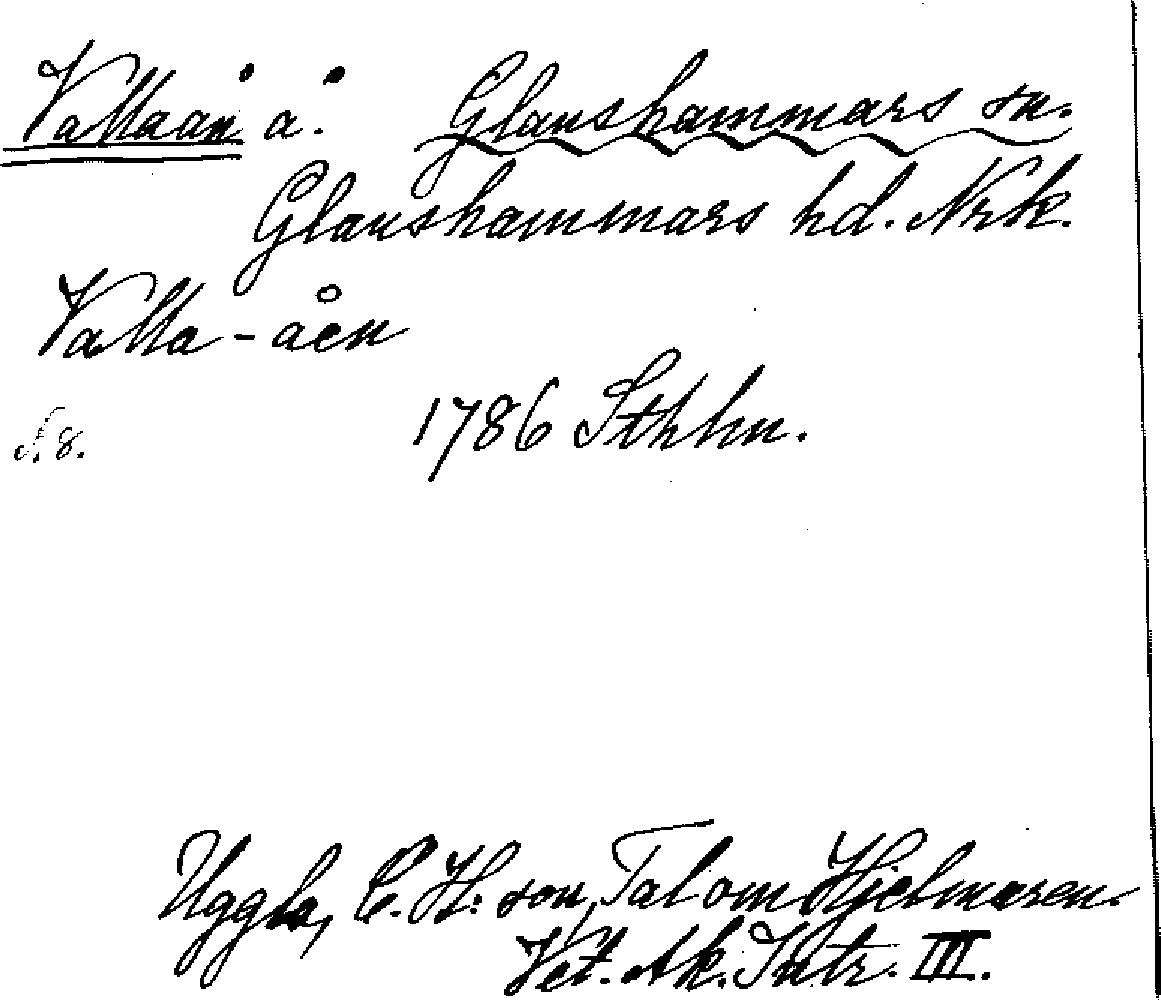 Vallaån å.
Glanshammars sn.
Glanshammars hd. Nrk.
Valla-åen
1786 Sthlm.
S. 8.
Uggla, C. H:son, Tal om Hjelmaren.
Vet. Ak. Intr. III.